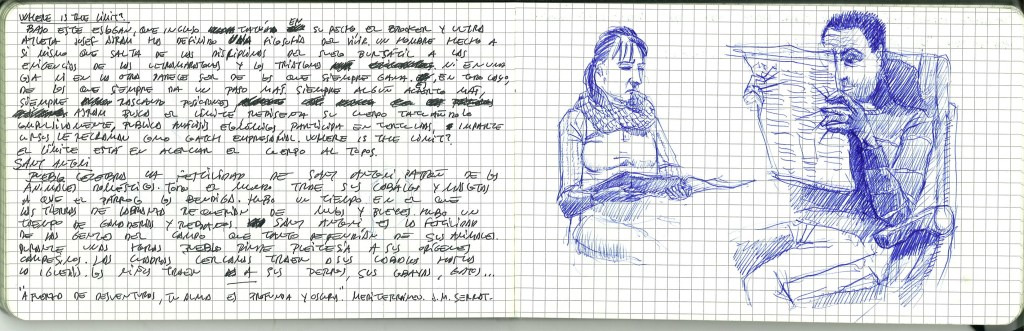 WHERE IS THE LIMIT?
BAJO ESTE ESLOGAN, QUE INCLUSO TATUADO EN SU PECHO, EL BROKER Y ULTRA
ATLETA JOSEF AJRAM HA DEFINIDO UNA FILOSOFÍA DEL VIVIR. UN HOMBRE HECHO A
SI MISMO QUE SALTA DE LAS DISCIPLINAS DEL SUELO BURSÁTIL A LAS
EXIGENCIAS DE LOS ULTRAMARATONS Y LOS TRIATLONS NI EN UNA
COSA NI EN LA OTRA PARECE SER DE LOS QUE SIEMPRE GANA. EN TODO CASO,
DE LOS QUE SIEMPRE DA UN PASO MÁS, SIEMPRE ALGÚN ACIERTO MÁS,
SIEMPRE RASCANDO POSICIONES
AJRAM BUSCA EL LÍMITE SU CUERPO
COMPULSIVAMENTE, PUBLICA ANÁLISIS PARTICIPA EN TERTULIAS, IMPARTE
CURSOS, LE RECLAMAN COMO COACH EMPRESARIAL. WHERE IS THE LIMIT?
EL LÍMITE ESTÁ EN ACERCAR EL CUERPO AL TOPOS.
SANT ANTONI
PUEBLO CELEBRABA LA FESTIVIDAD DE SANT ANTONI, PATRÓN DE LOS
ANIMALES DOMÉSTICOS. TODO EL MUNDO TRAE SUS CABALLOS Y MASCOTAS
A QUE EL PÁRROCO LOS BENDIGA. HUBO UN TIEMPO EN EL QUE
LAS TIERRAS DE LABRANZA REQUERÍAN DE MULOS Y BUEYES. HUBO UN
TIEMPO DE GANADEROS Y REBAÑOS. SANT ANTONI ES LA FESTIVIDAD
DE LAS GENTES DEL CAMPO QUE TANTO DEPENDÍAN DE SUS ANIMALES.
DURANTE UNAS HORAS PUEBLO RINDE PLEITESÍA A SUS ORÍGENES
CAMPESINOS. LAS CUADRAS CERCANAS TRAEN A SUS CABALLOS HASTA
LA IGLESIA. LOS NIÑOS TRAEN A SUS PERROS, SUS COBAYAS, GATOS...
"A FUERZA DE DESVENTURAS, TU ALMA ES PROFUNDA Y OSCURA" MEDITERRÁNEO. J.M. SERRAT.